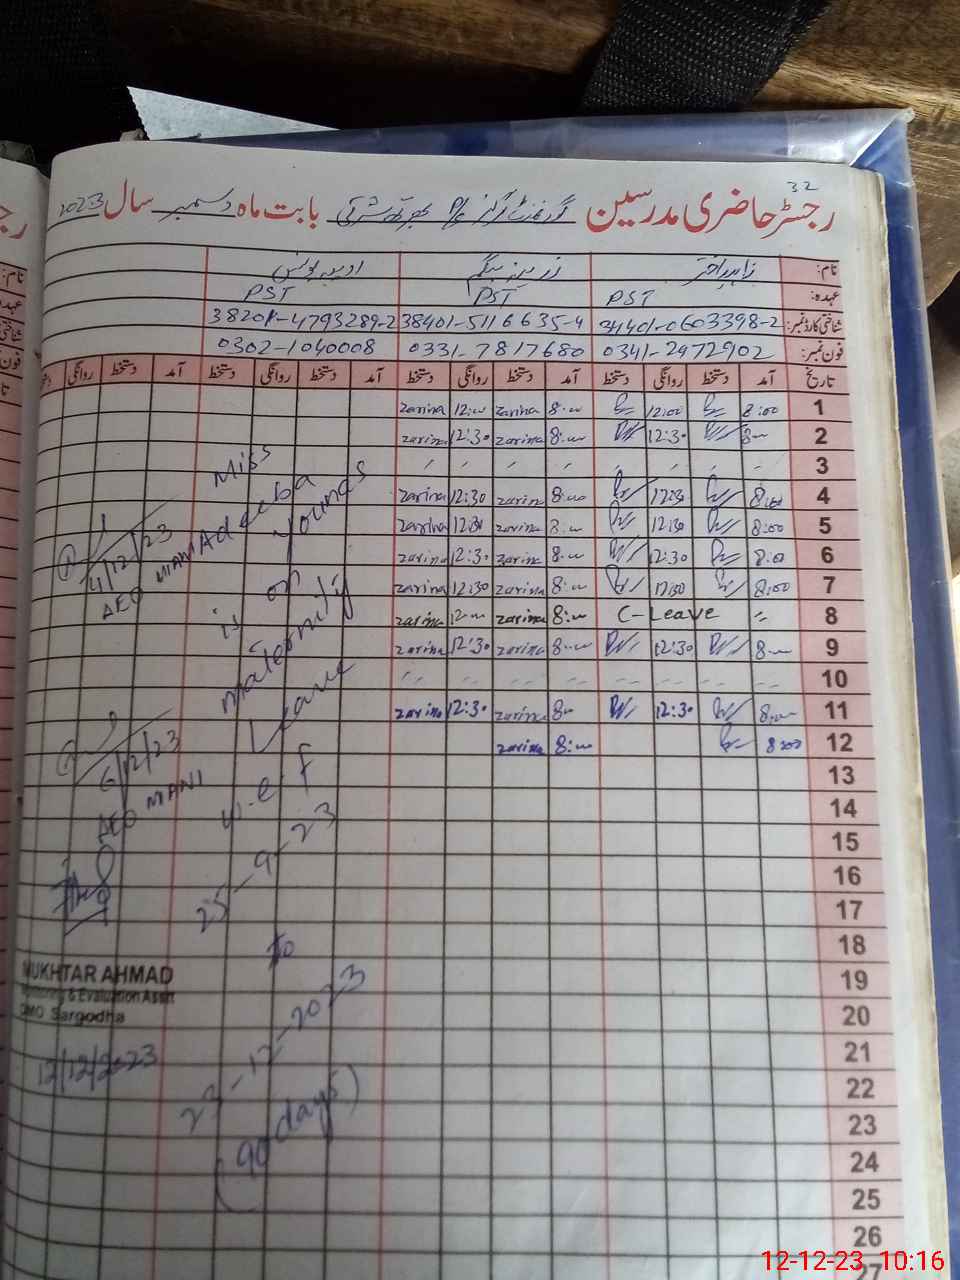 32
رجسٹر حاضری مدرسین گورنمنٹ گرلز P/S بابت ماہ دسمبر سال 2023
نام: زاہدہ اختر زرینہ بیگم ادیبہ یونس
عہدہ: PST PST PST
شناختی کارڈ نمبر: 34401-0603398-2 38401-5116635-4 38201-4793289-2
فون نمبر: 0341-2972902 0331-7817680 0302-1040008
تاریخ آمد دستخط روانگی دستخط آمد دستخط روانگی دستخط آمد دستخط روانگی دستخط آمد دستخط روانگی دستخط
1 8:00 12:00 8:00 zarina 12:00 zarina
2 8:00 12:30 8:00 zarina 12:30 zarina
3
4 8:00 12:30 8:00 zarina 12:30 zarina
5 8:00 12:30 8:00 zarina 12:30 zarina
6 8:00 12:30 8:00 zarina 12:30 zarina
7 8:00 12:30 8:00 zarina 12:30 zarina
8 C-Leave 8:00 zarina 12:00 zarina
9 8:00 12:30 8:00 zarina 12:30 zarina
10
11 8:00 12:30 8:00 zarina 12:30 zarina
12 8:00 8:00 zarina
13
14
15
16
17
18
19
20
21
22
23
24
25
26
27
Miss
Adeeba
Younas
is on
maternity
Leave
w.e.f
25-9-23
to
23-12-2023
(90 days)
4/12/23
AEO MIANI
6/12/23
AEO MIANI
MUKHTAR AHMAD
Monitoring & Evaluation Asstt
DMO Sargodha
12/12/2023
12-12-23 10:16